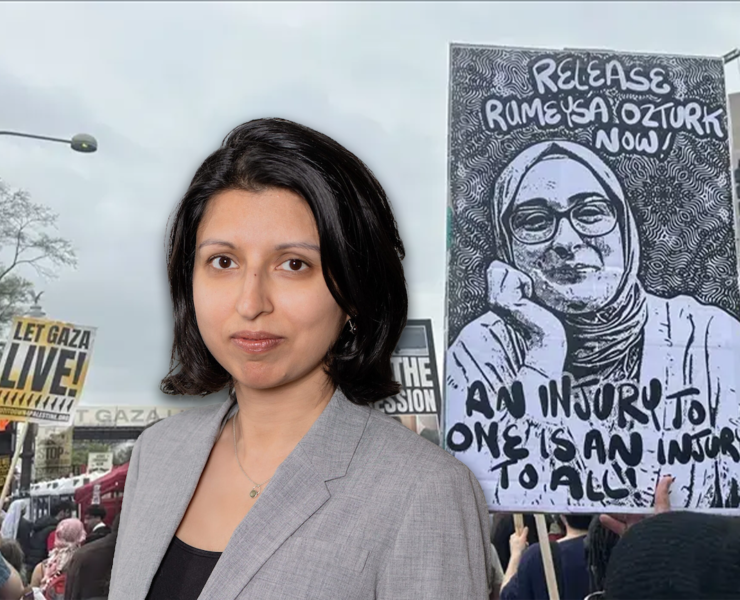 RELEASE
RUMEYSA OZTURK
NOW!
AN INJURY TO
ONE IS AN INJURY
TO ALL!
LET GAZA
LIVE!
THE
ESSION
T GAZA
STOP